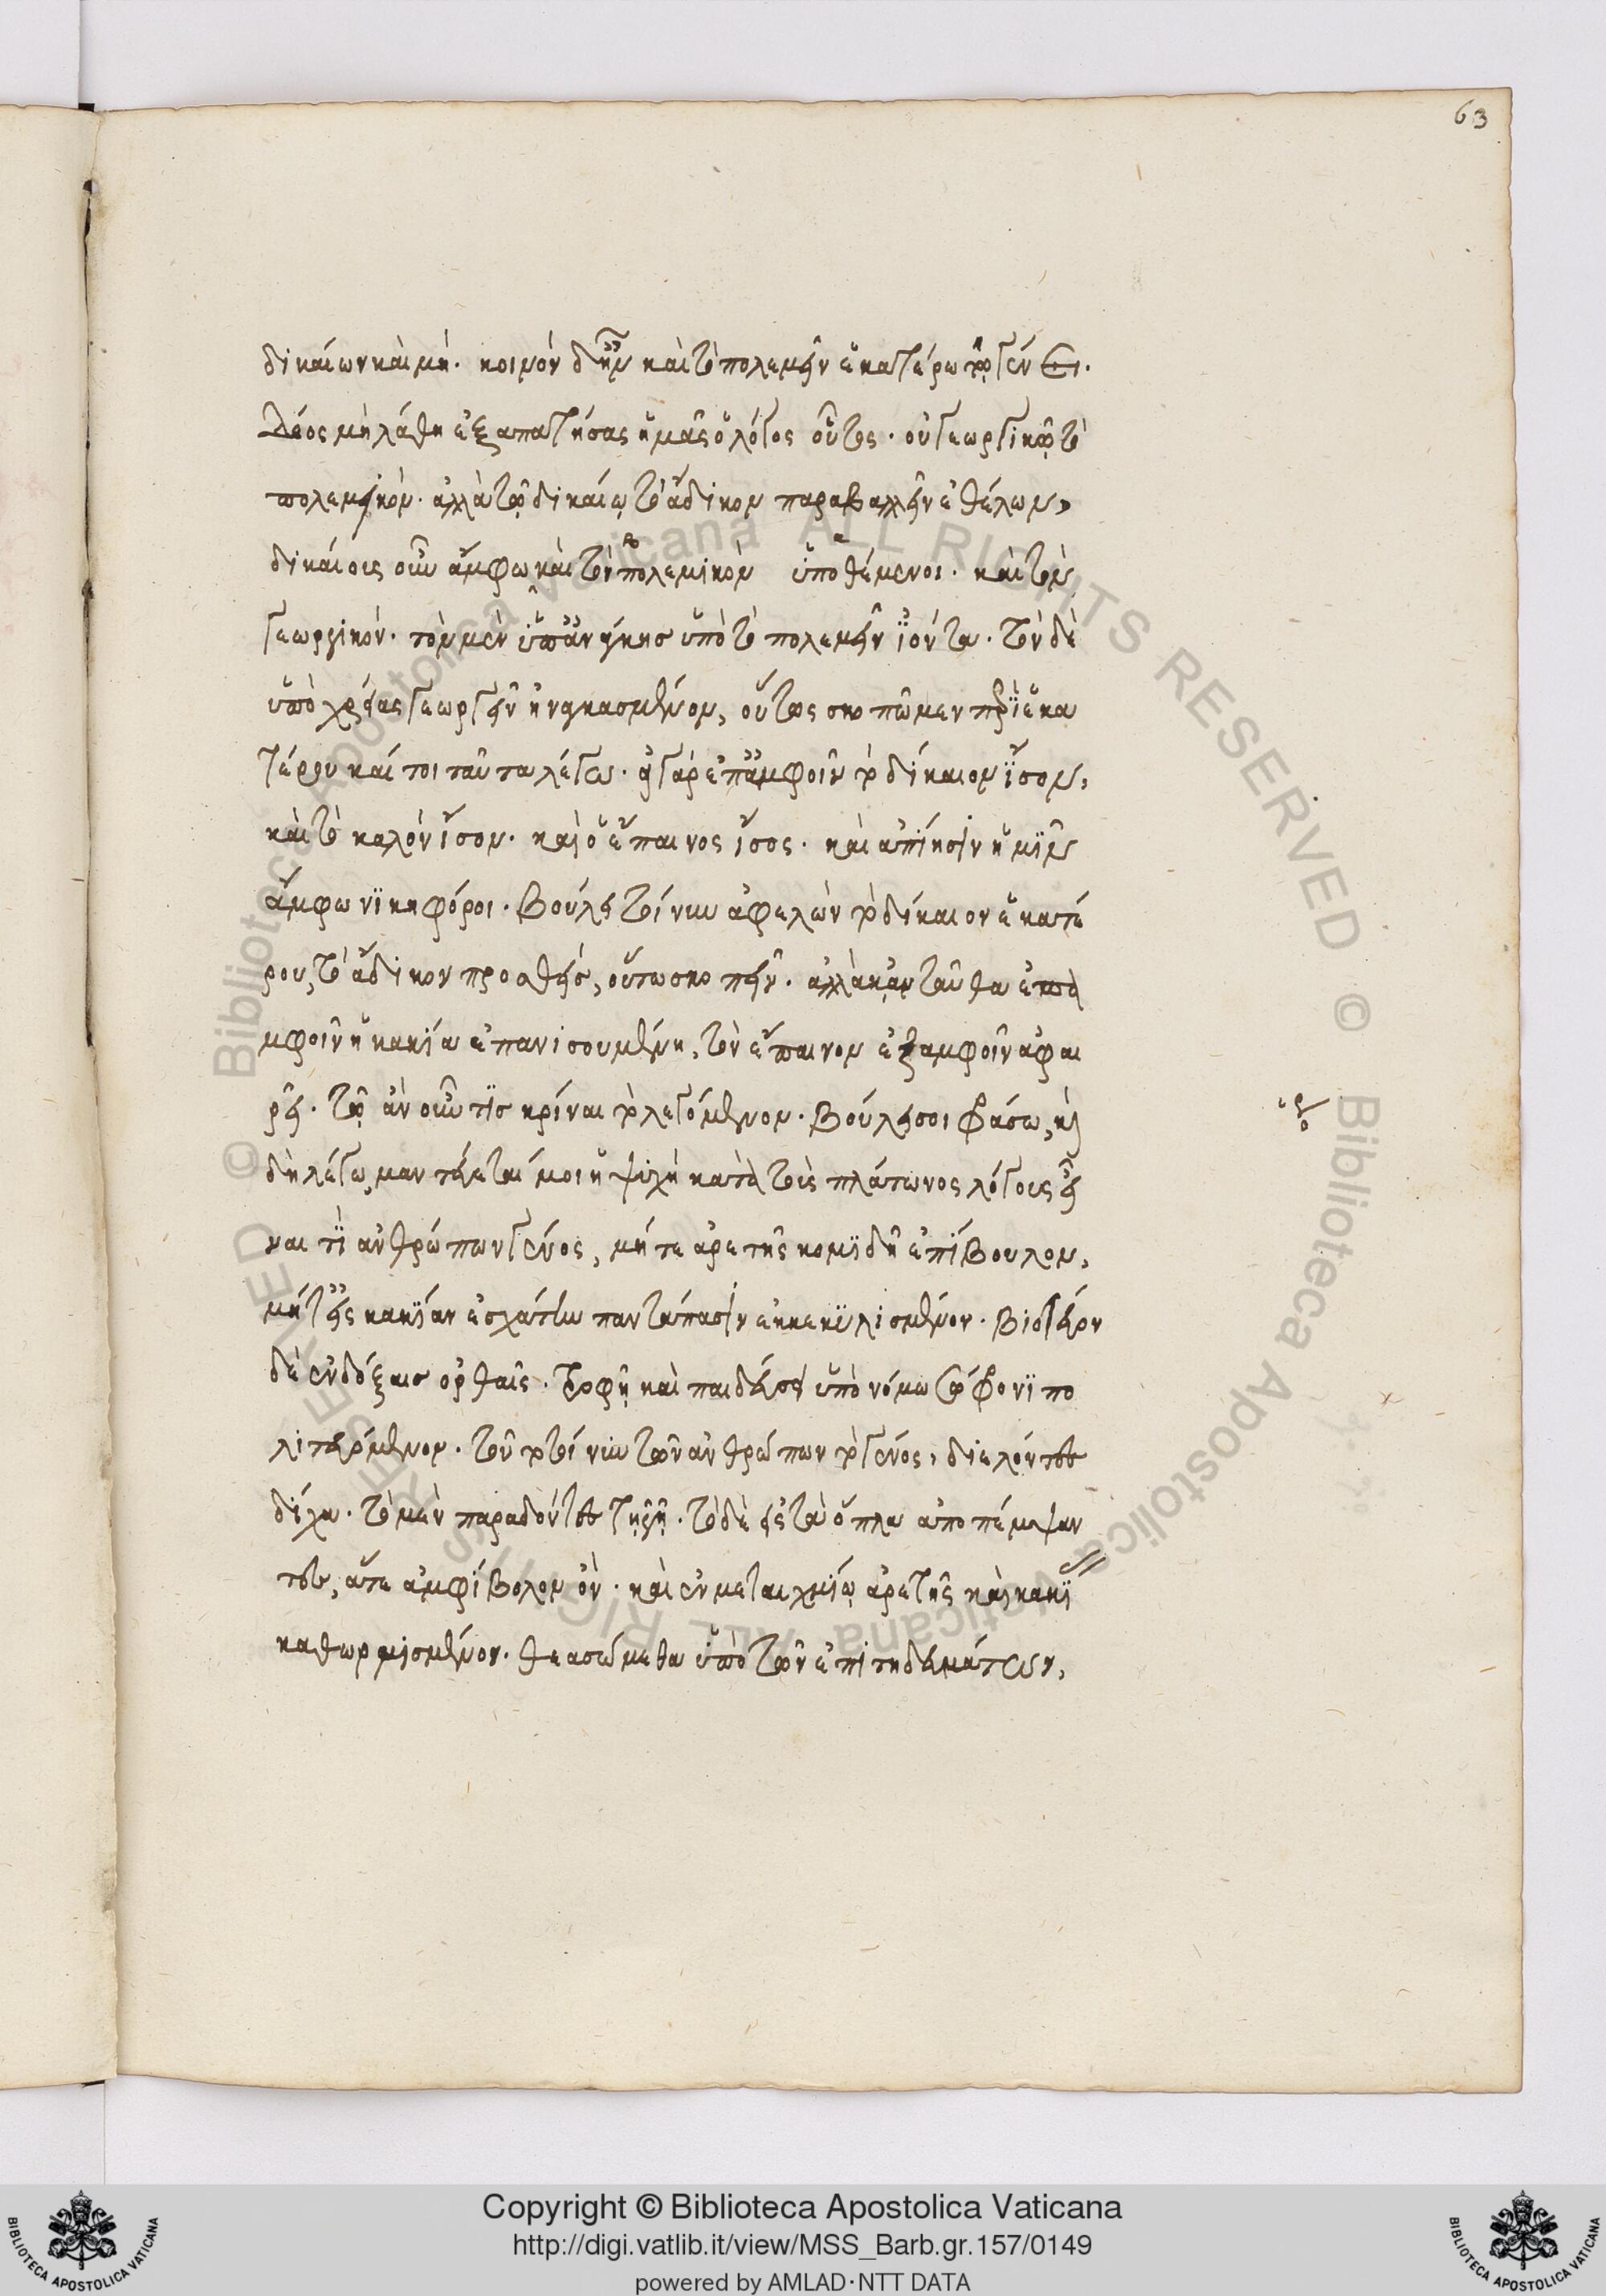 63
δικαίων καὶ μή. κοινὸν δ' ἦν καὶ τὸ πολεμεῖν ἑκατέρῳ τῷ γένει.
Δέος μὴ λάθῃ ἐξαπατήσας ἡμᾶς ὁ λόγος οὗτος. οὐ γεωργικῷ τὸ
πολεμικόν. ἀλλὰ τῷ δικαίῳ τὸ ἄδικον παραβάλλειν ἐθέλων,
δικαίους οὖν ἄμφω καὶ τὸν πολεμικὸν ὑποθέμενοι. καὶ τὸν
γεωργικόν. τὸν μὲν ὑπ' ἀνάγκης ὑπὸ τὸ πολεμεῖν ἰόντα. τὸν δὲ
ὑπὸ χρείας γεωργεῖν ἠναγκασμένον, οὕτως σκοπῶμεν περὶ ἑκα
τέρου καί τοι ταῦτα λέγω. εἰ γὰρ ἐπ' ἀμφοῖν τὸ δίκαιον ἴσον,
καὶ τὸ καλὸν ἴσον. καὶ ὁ ἔπαινος ἴσος. καὶ ἀπίησιν ἡμῖν
ἄμφω νικηφόροι. Βούλει τοίνυν ἀφελὼν τὸ δίκαιον ἑκατέ
ρου, τὸ ἄδικον προσθεὶς, οὕτω σκοπεῖν. ἀλλὰ κἀνταῦθα ἐπ' ἀ
μφοῖν ἡ κακία ἐπανισουμένη, τὸν ἔπαινον ἐξ ἀμφοῖν ἀφαι
ρεῖ. τῷ ἂν οὖν τις κρίναι τὸ λεγόμενον. Βούλει σοι φράσω, καὶ
δὴ λέγω, μαντεύεταί μοι ἡ ψυχὴ κατὰ τοὺς πλάτωνος λόγους εἶ
ναί τι ἀνθρώπων γένος, μήτε ἀρετῆς κομιδῇ ἐπίβουλον,
μήτ' εἰς κακίαν ἐσχάτην παντάπασιν ἐκκεκυλισμένον. Βιοτεῦον
δὲ ἐν δόξαις ὀρθαῖς. τροφῇ καὶ παιδεύσει ὑπὸ νόμῳ σώφρονι πο
λιτευόμενον. τοῦτο τοίνυν τῶν ἀνθρώπων τὸ γένος, διελόντες
δίχα. τὸ μὲν παραδόντες τῇ γῇ. τὸ δὲ εἰς τὰ ὅπλα ἀποπέμψαν
τες, ἅτε ἀμφίβολον ὂν. καὶ ἐν μεταιχμίῳ ἀρετῆς καὶ κακί
καθωρμισμένον. θεασώμεθα ὑπὸ τῶν ἐπιτηδευμάτων,
Copyright © Biblioteca Apostolica Vaticana
http://digi.vatlib.it/view/MSS_Barb.gr.157/0149
powered by AMLAD·NTT DATA
BIBLIOTECA APOSTOLICA VATICANA
BIBLIOTECA APOSTOLICA VATICANA
© Biblioteca Apostolica Vaticana ALL RIGHTS RESERVED
© Biblioteca Apostolica Vaticana ALL RIGHTS RESERVED